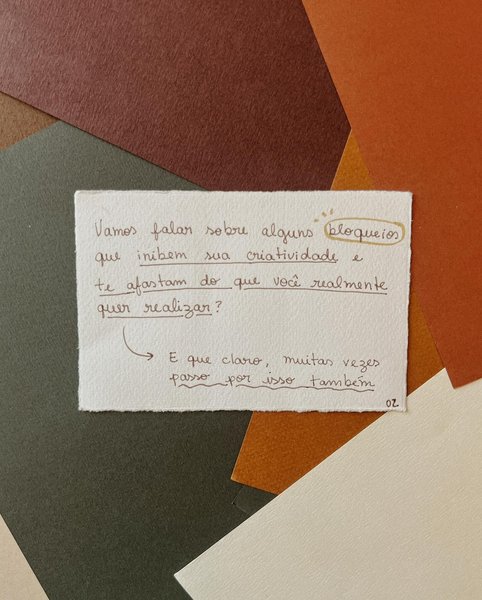 Vamos falar sobre alguns bloqueios
que inibem sua criatividade e
te afastam do que você realmente
quer realizar?
E que claro, muitas vezes
passo por isso também
02